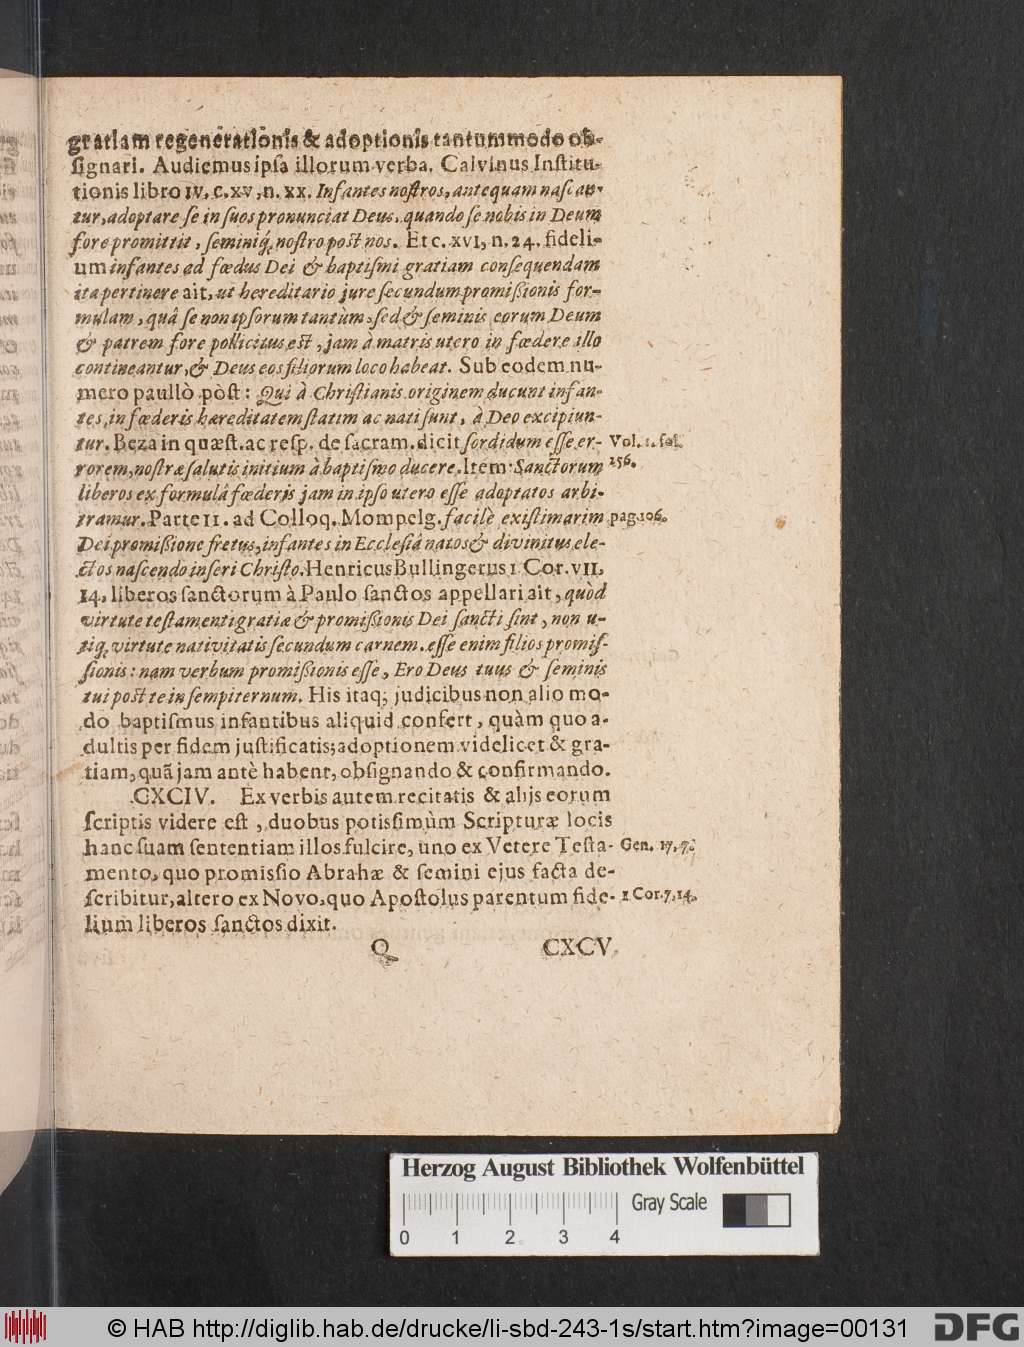 gratiam regenerationis & adoptionis tantummodo ob-
signari. Audiemus ipsa illorum verba. Calvinus Institu-
tionis libro IV, c. xv, n. xx. Infantes nostros, antequam nascan-
tur, adoptare se in suos pronunciat Deus, quando se nobis in Deum
fore promittit, seminiq; nostro post nos. Et c. xvi, n. 24. fideli-
um infantes ad fœdus Dei & baptismi gratiam consequendam
ita pertinere ait, ut hereditario jure secundum promißionis for-
mulam, quâ se non ipsorum tantùm, sed & seminis eorum Deum
& patrem fore pollicitus est, jam à matris utero in fœdere illo
contineantur, & Deus eos filiorum loco habeat. Sub eodem nu-
mero paullò pòst: Qui à Christianis originem ducunt infan-
tes, in fœderis hæreditatem statim ac nati sunt, à Deo excipiun-
tur. Beza in quæst. ac resp. de sacram. dicit sordidum esse er- Vol. 1. fol.
rorem, nostræ salutis initium à baptismo ducere. Item: Sanctorum 256.
liberos ex formulâ fœderis jam in ipso utero esse adoptatos arbi-
tramur. Parte II. ad Colloq. Mompelg. facilè existimarim pag. 106.
Dei promißione fretus, infantes in Ecclesiâ natos & divinitus ele-
ctos nascendo inseri Christo. Henricus Bullingerus 1 Cor. VII,
14, liberos sanctorum à Paulo sanctos appellari ait, quòd
virtute testamenti gratiæ & promißionis Dei sancti sint, non u-
tiq; virtute nativitatis secundum carnem. esse enim filios promis-
sionis: nam verbum promißionis esse, Ero Deus tuus & seminis
tui post te in sempiternum. His itaq; judicibus non alio mo-
do baptismus infantibus aliquid confert, quàm quo a-
dultis per fidem justificatis; adoptionem videlicet & gra-
tiam, quã jam antè habent, obsignando & confirmando.
CXCIV. Ex verbis autem recitatis & alijs eorum
scriptis videre est, duobus potissimùm Scripturæ locis
hanc suam sententiam illos fulcire, uno ex Vetere Testa- Gen. 17, 7.
mento, quo promissio Abrahæ & semini ejus facta de-
scribitur, altero ex Novo, quo Apostolus parentum fide- 1 Cor. 7, 14.
lium liberos sanctos dixit.
Q CXCV.
Herzog August Bibliothek Wolfenbüttel
Gray Scale
0 1 2 3 4
© HAB http://diglib.hab.de/drucke/li-sbd-243-1s/start.htm?image=00131 DFG